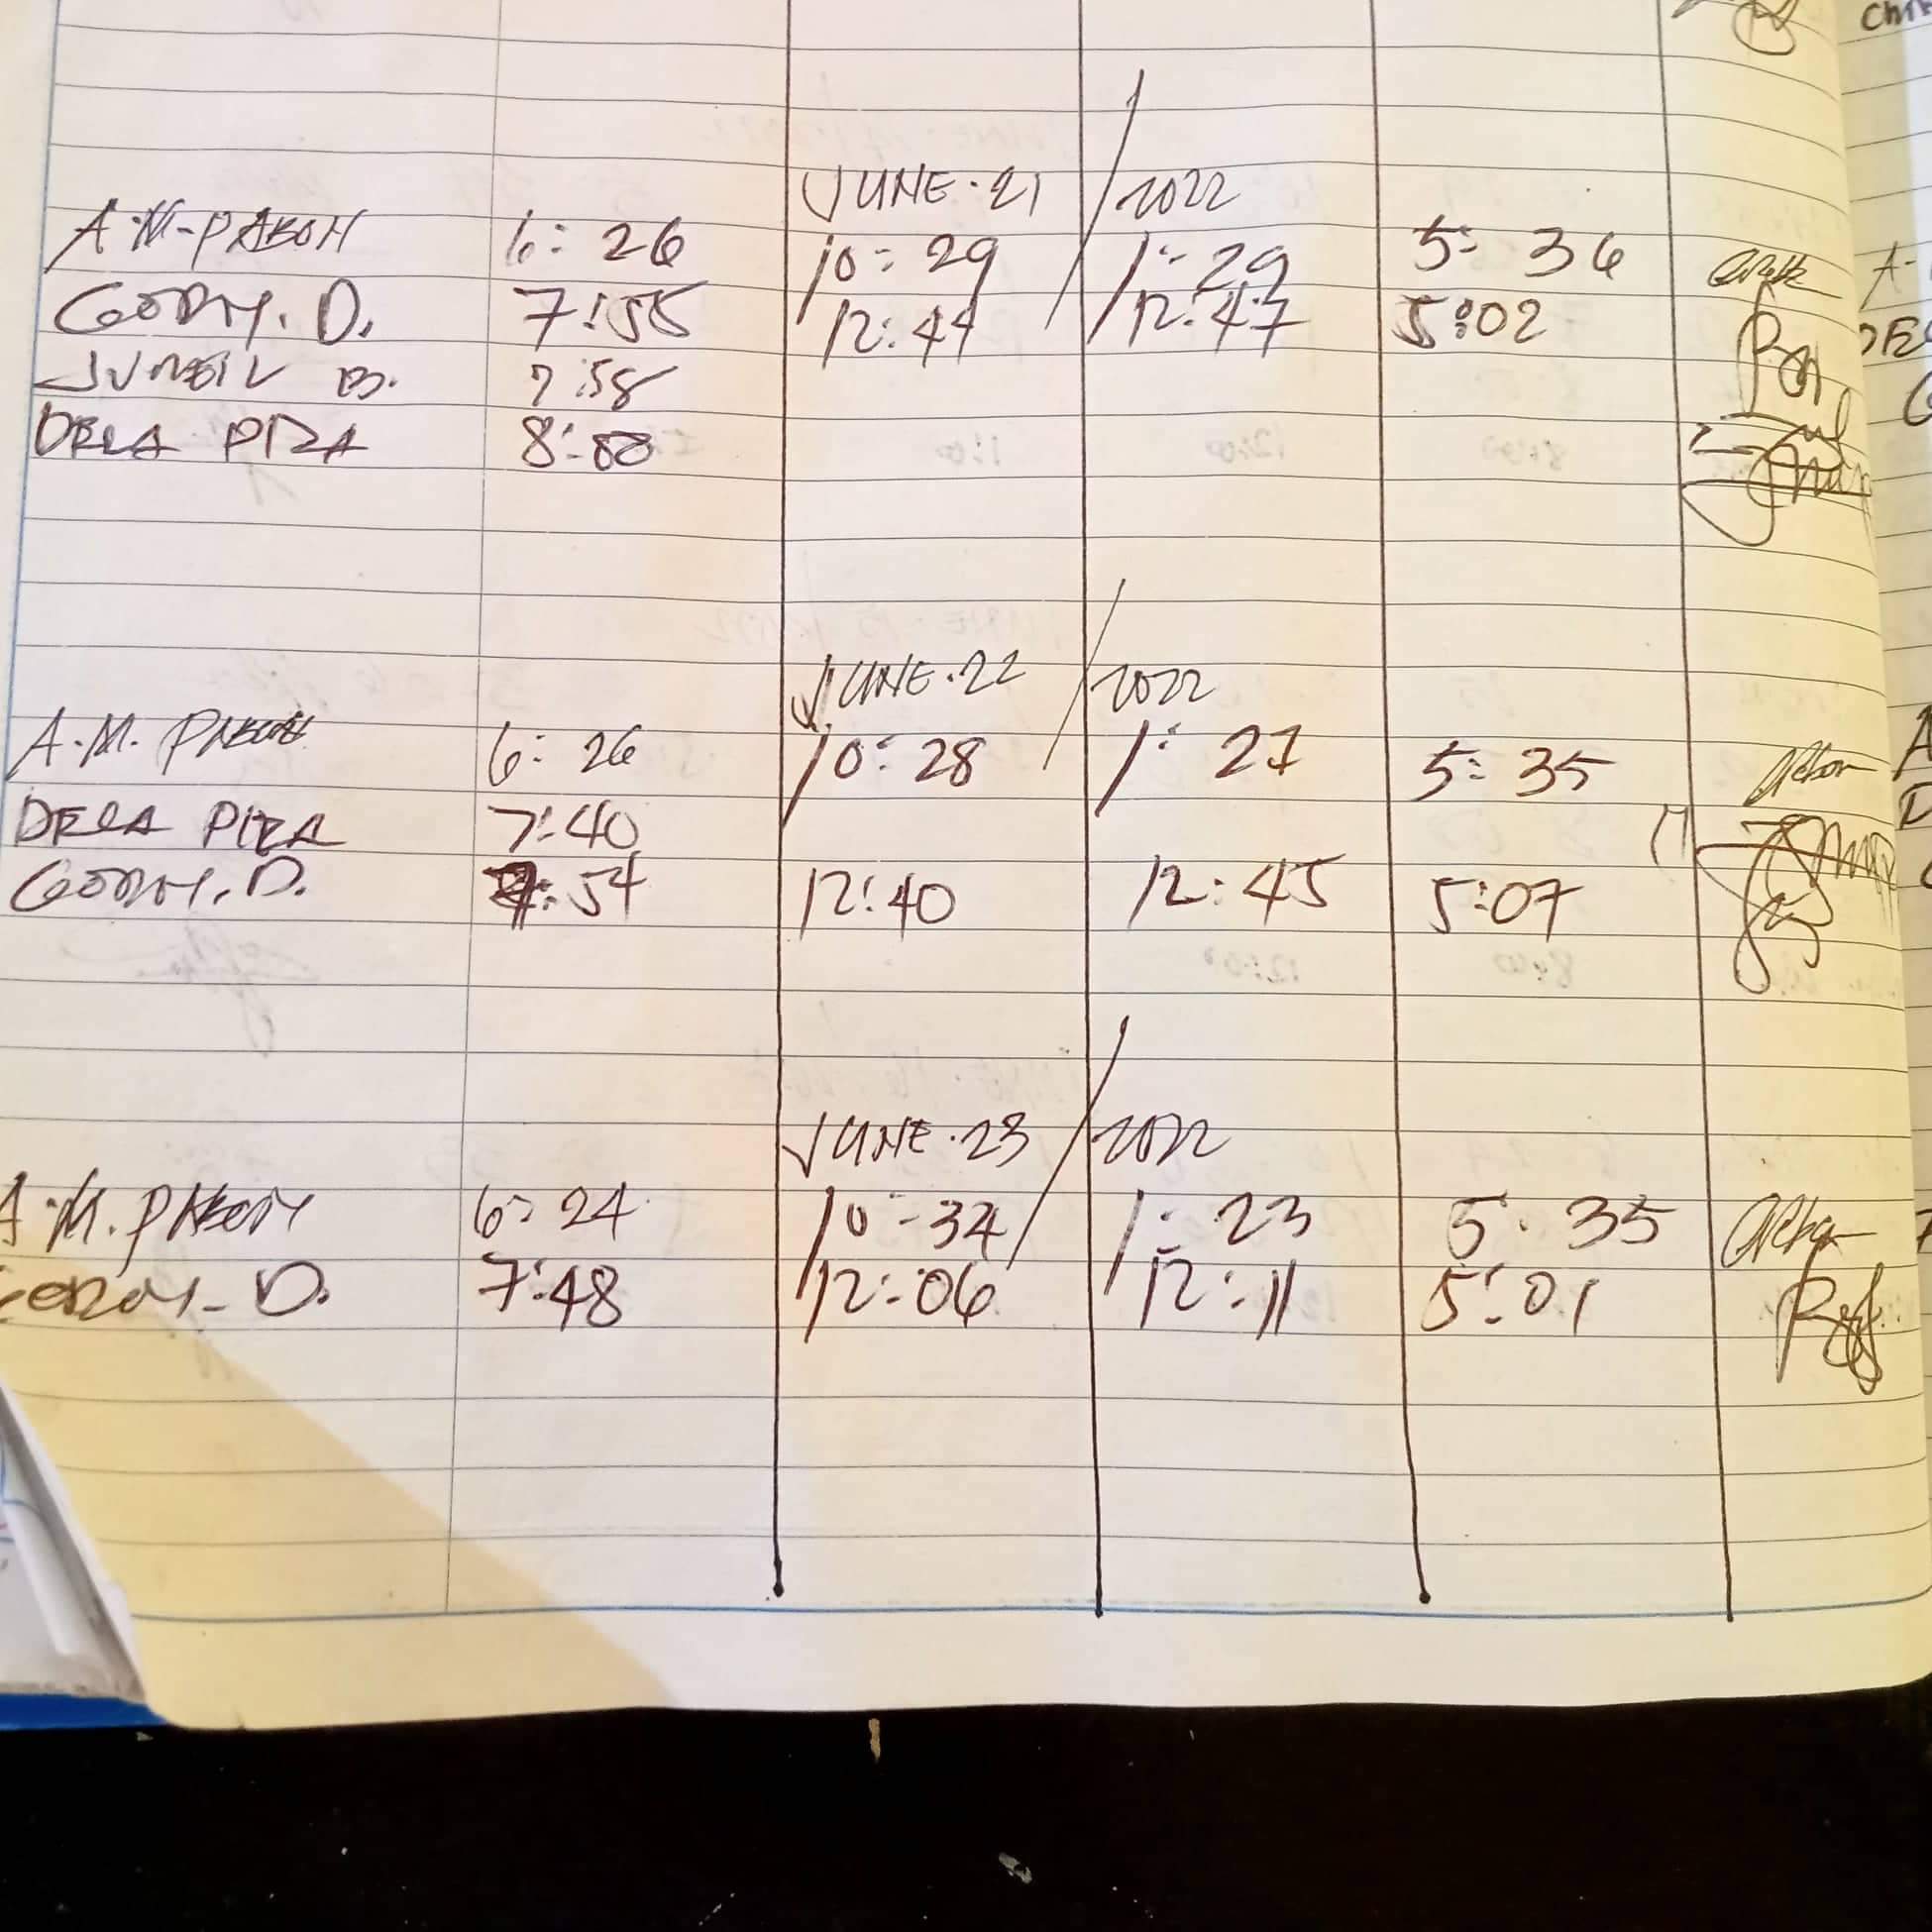 JUNE. 21 / 2022
A.M-PABON 6: 26 10: 29 1: 29 5: 36
GORDY. D. 7:55 12:44 12:47 5:02
JUNEIL B. 7:58
DELA PIZA 8:00
JUNE. 22 / 2022
A.M. PABON 6: 26 10: 28 1: 27 5: 35
DELA PIZA 7:40
GORDY. D. 7:54 12:40 12:45 5:07
JUNE. 23 / 2022
A.M. PABON 6: 24 10:34 1: 23 5: 35
D. 7:48 12:06 12:11 5:01